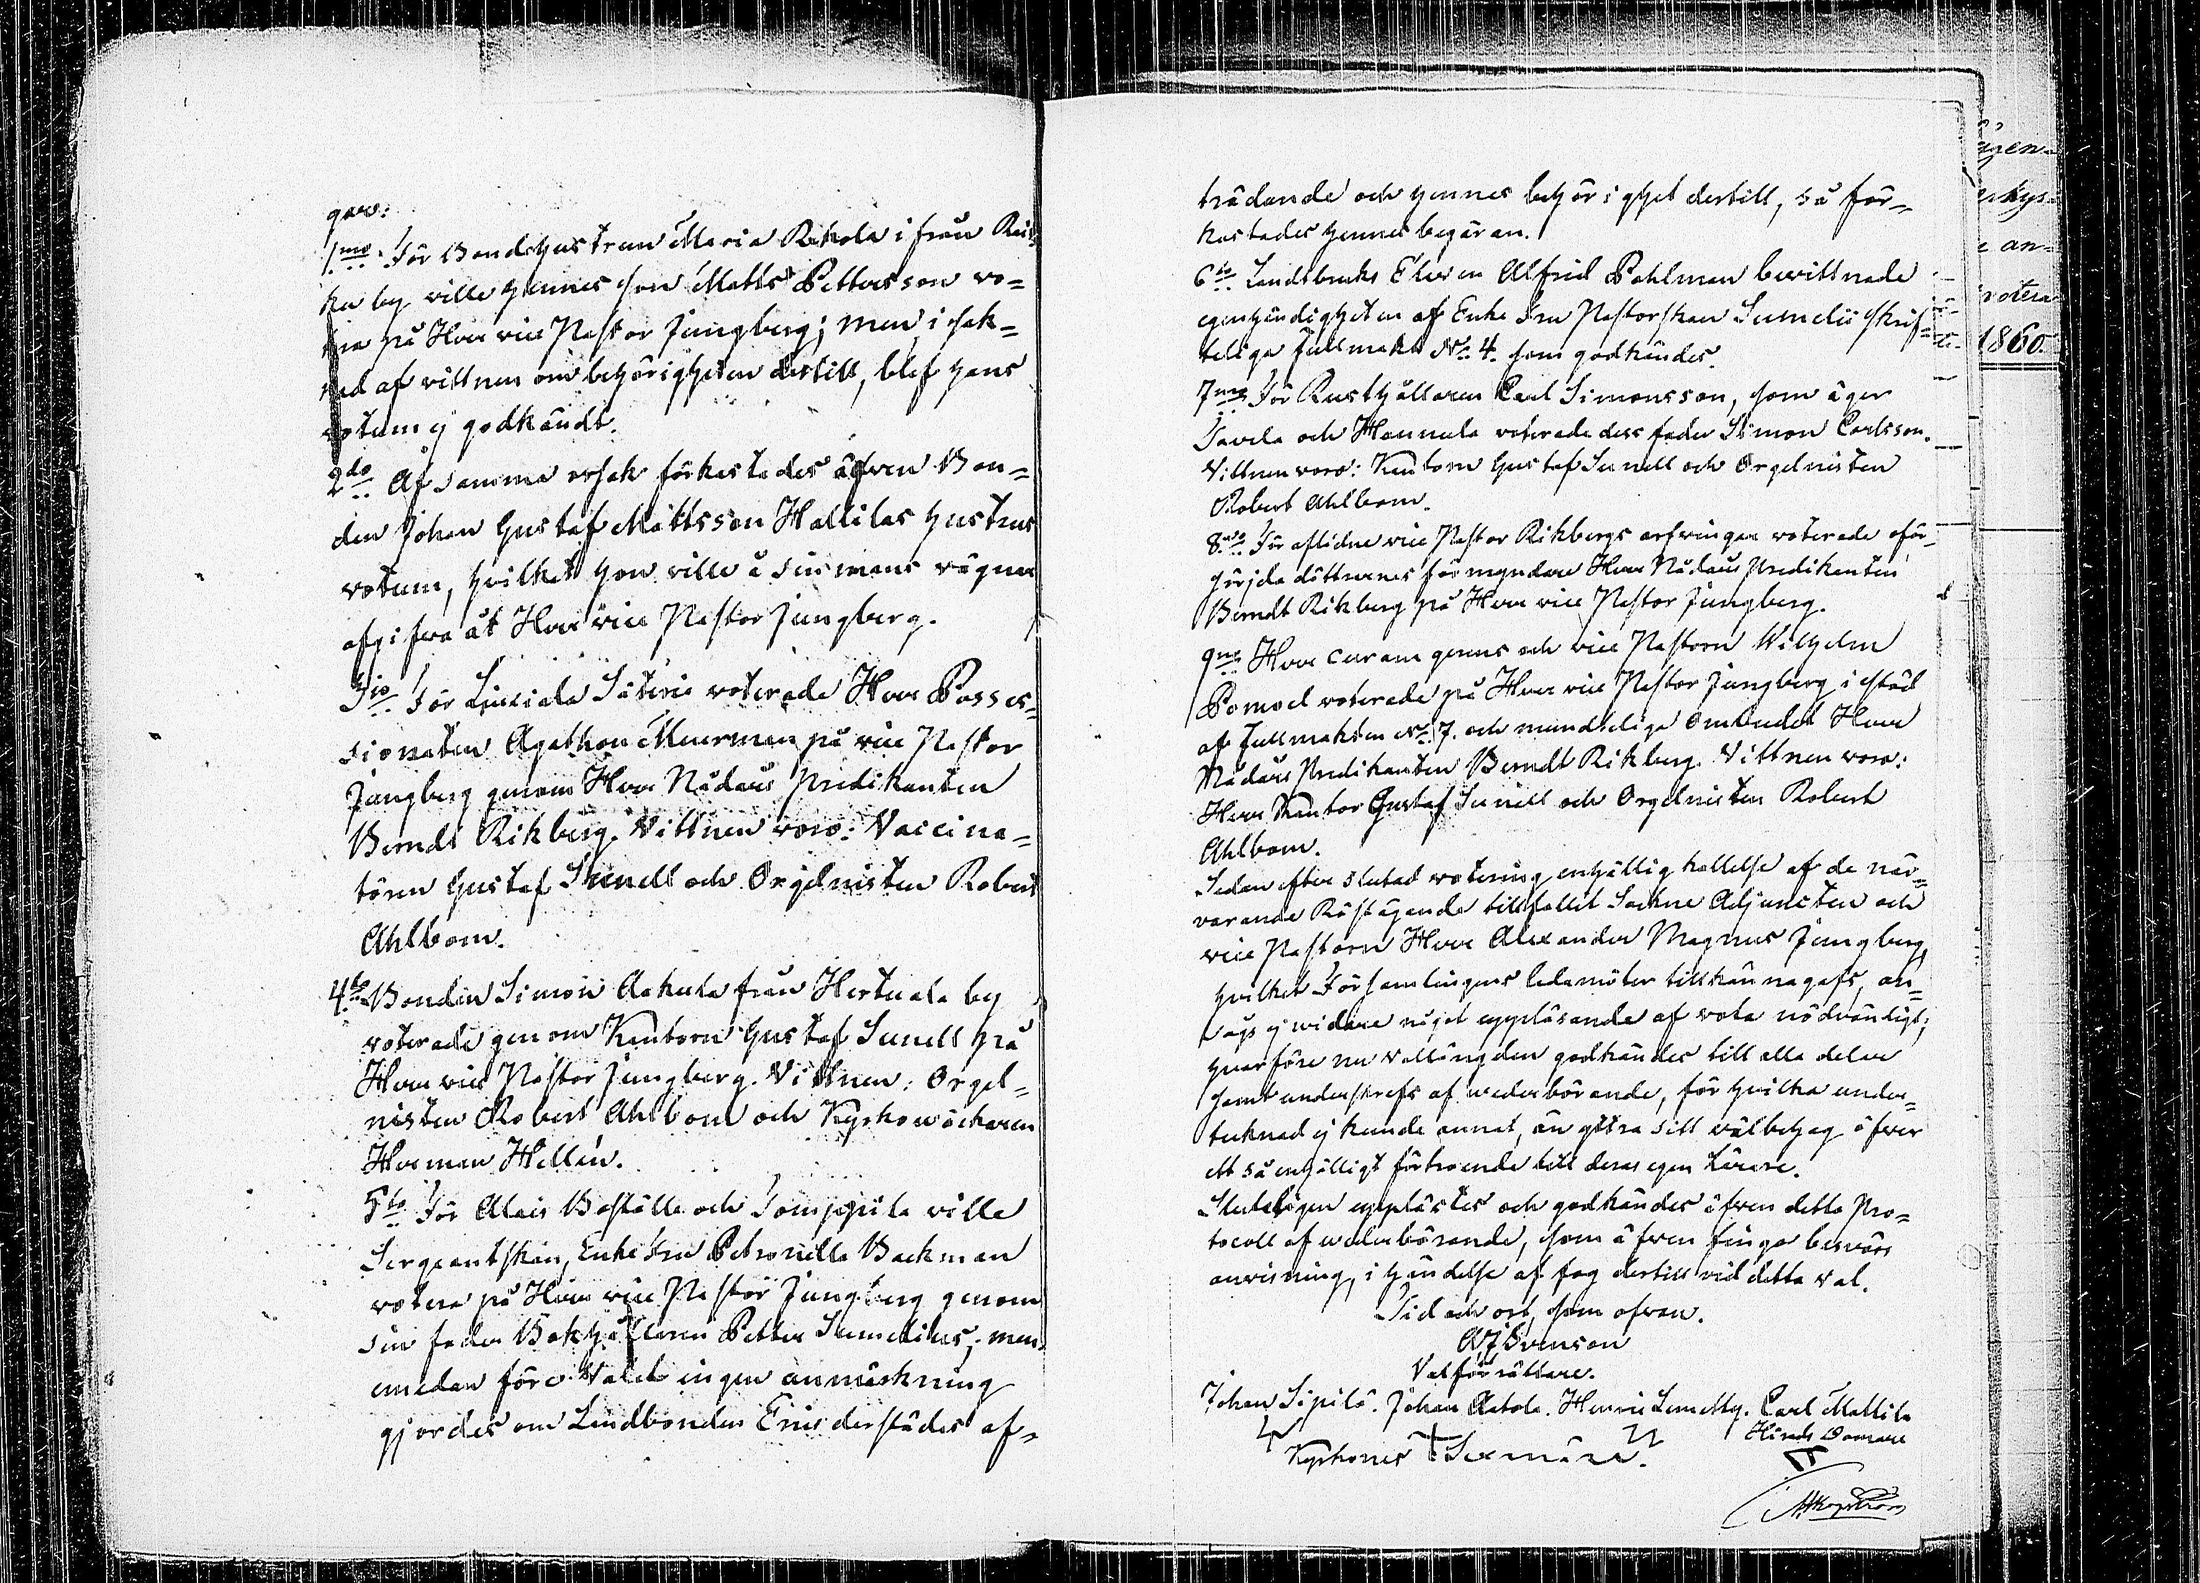 gar:
1mo För Bondehustrun Maria Rekola ifrån Rus-
ka by ville hennes son Matts Pettersson vo-
tera på Herr vice Pastor Jungberg; men i sak-
nad af vittnen om behörigheten dertill, blef hans
votum ej godkändt.
2do Af samma orsak förkastades äfven Bon-
den Johan Gustaf Mattsson Hallilas hustrus
votum, hvilket hon ville å sin mans vägnar
afgifva åt Herr vice Pastor Jungberg.
3io För Säteri voterade Herr Posses-
sionaten Agathon Meurman på vice Pastor
Jungberg genom Herr Nådaårs Predikanten
Berndt Rikberg. Vittnen voro: Vaccina-
tören Gustaf Sunell och Orgelnisten Robert
Ahlbom.
4to Bonden Simon Aakula från Hertuala by
voterade genom Kantorn Gustaf Sunell på
Herr vice Pastor Jungberg. Vittnen: Orgel-
nisten Robert Ahlbom och Kyrkowäcktaren
Herman Hellén.
5to För Alais Boställe och Tomppila ville
Sergeantskan, Enkefru Petronella Backman
votera på Herr vice Pastor Jungberg genom
sin fader Bokhållaren Petter Sumelius; men
emedan före Valet ingen anmärkning
gjordes om Landbonden Erics derstädes af-
trädande och hennes behörighet dertill, så för-
kastades hennes begäran.
6to Landtbruks Eleven Alfred Pohlman bevittnade
egenhändigheten af Enke Fru Pastorskan Sumelii skrif-
teliga fullmakt No 4. som godkändes.
7mo För Rusthållaren Carl Simonsson, som äger
Tavela och Hannula voterade dess fader Simon Carlsson.
Vittnen voro: Kantorn Gustaf Sunell och Orgelnisten
Robert Ahlbom.
8vo För aflidne vice Pastor Rikbergs arfvingar voterade oför-
sörjda döttrarnes förmyndare Herr Nådaårs Predikanten
Berndt Rikberg på Herr vice Pastor Jungberg.
9no Herr curam gerens och vice Pastorn Wilhelm
Pomoel voterade på Herr vice Pastor Jungberg i stöd
af fullmakten No 7. och mundtelige Ombudet Herr
Nådaårs Predikanten Berndt Rikberg. Vittnen voro:
Herr Kantor Gustaf Sunell och Orgelnisten Robert
Ahlbom.
Sedan efter slutad votering enhällig kallelse af de när-
varande Röstägande tillfallit Sockne Adjuncten och
vice Pastorn Herr Alexander Magnus Jungberg,
hvilket Församlingens ledamöter tillkännagafs, an-
sågs ej vidare något uppläsande af vota nödvändigt;
hvarföre nu vallängden godkändes till alla delar
samt underskrefs af wederbörande, för hvilka under-
tecknad ej kunde annat, än yttra sitt välbehag öfver
ett så enhälligt förtroende till deras egen Lärare.
Sluteligen upplästes och godkändes äfven detta Pro-
tocoll af wederbörande, som äfven fingo besvärs
anvisning, i händelse af fog dertill vid detta val.
Tid och ort, som ofvan.
A J Svenson
Valförrättare.
Johan Sipilä. Johan Aatola. Henric Lemetty. Carl Mattila
Härads Domare
Kyrkones Sexmän.